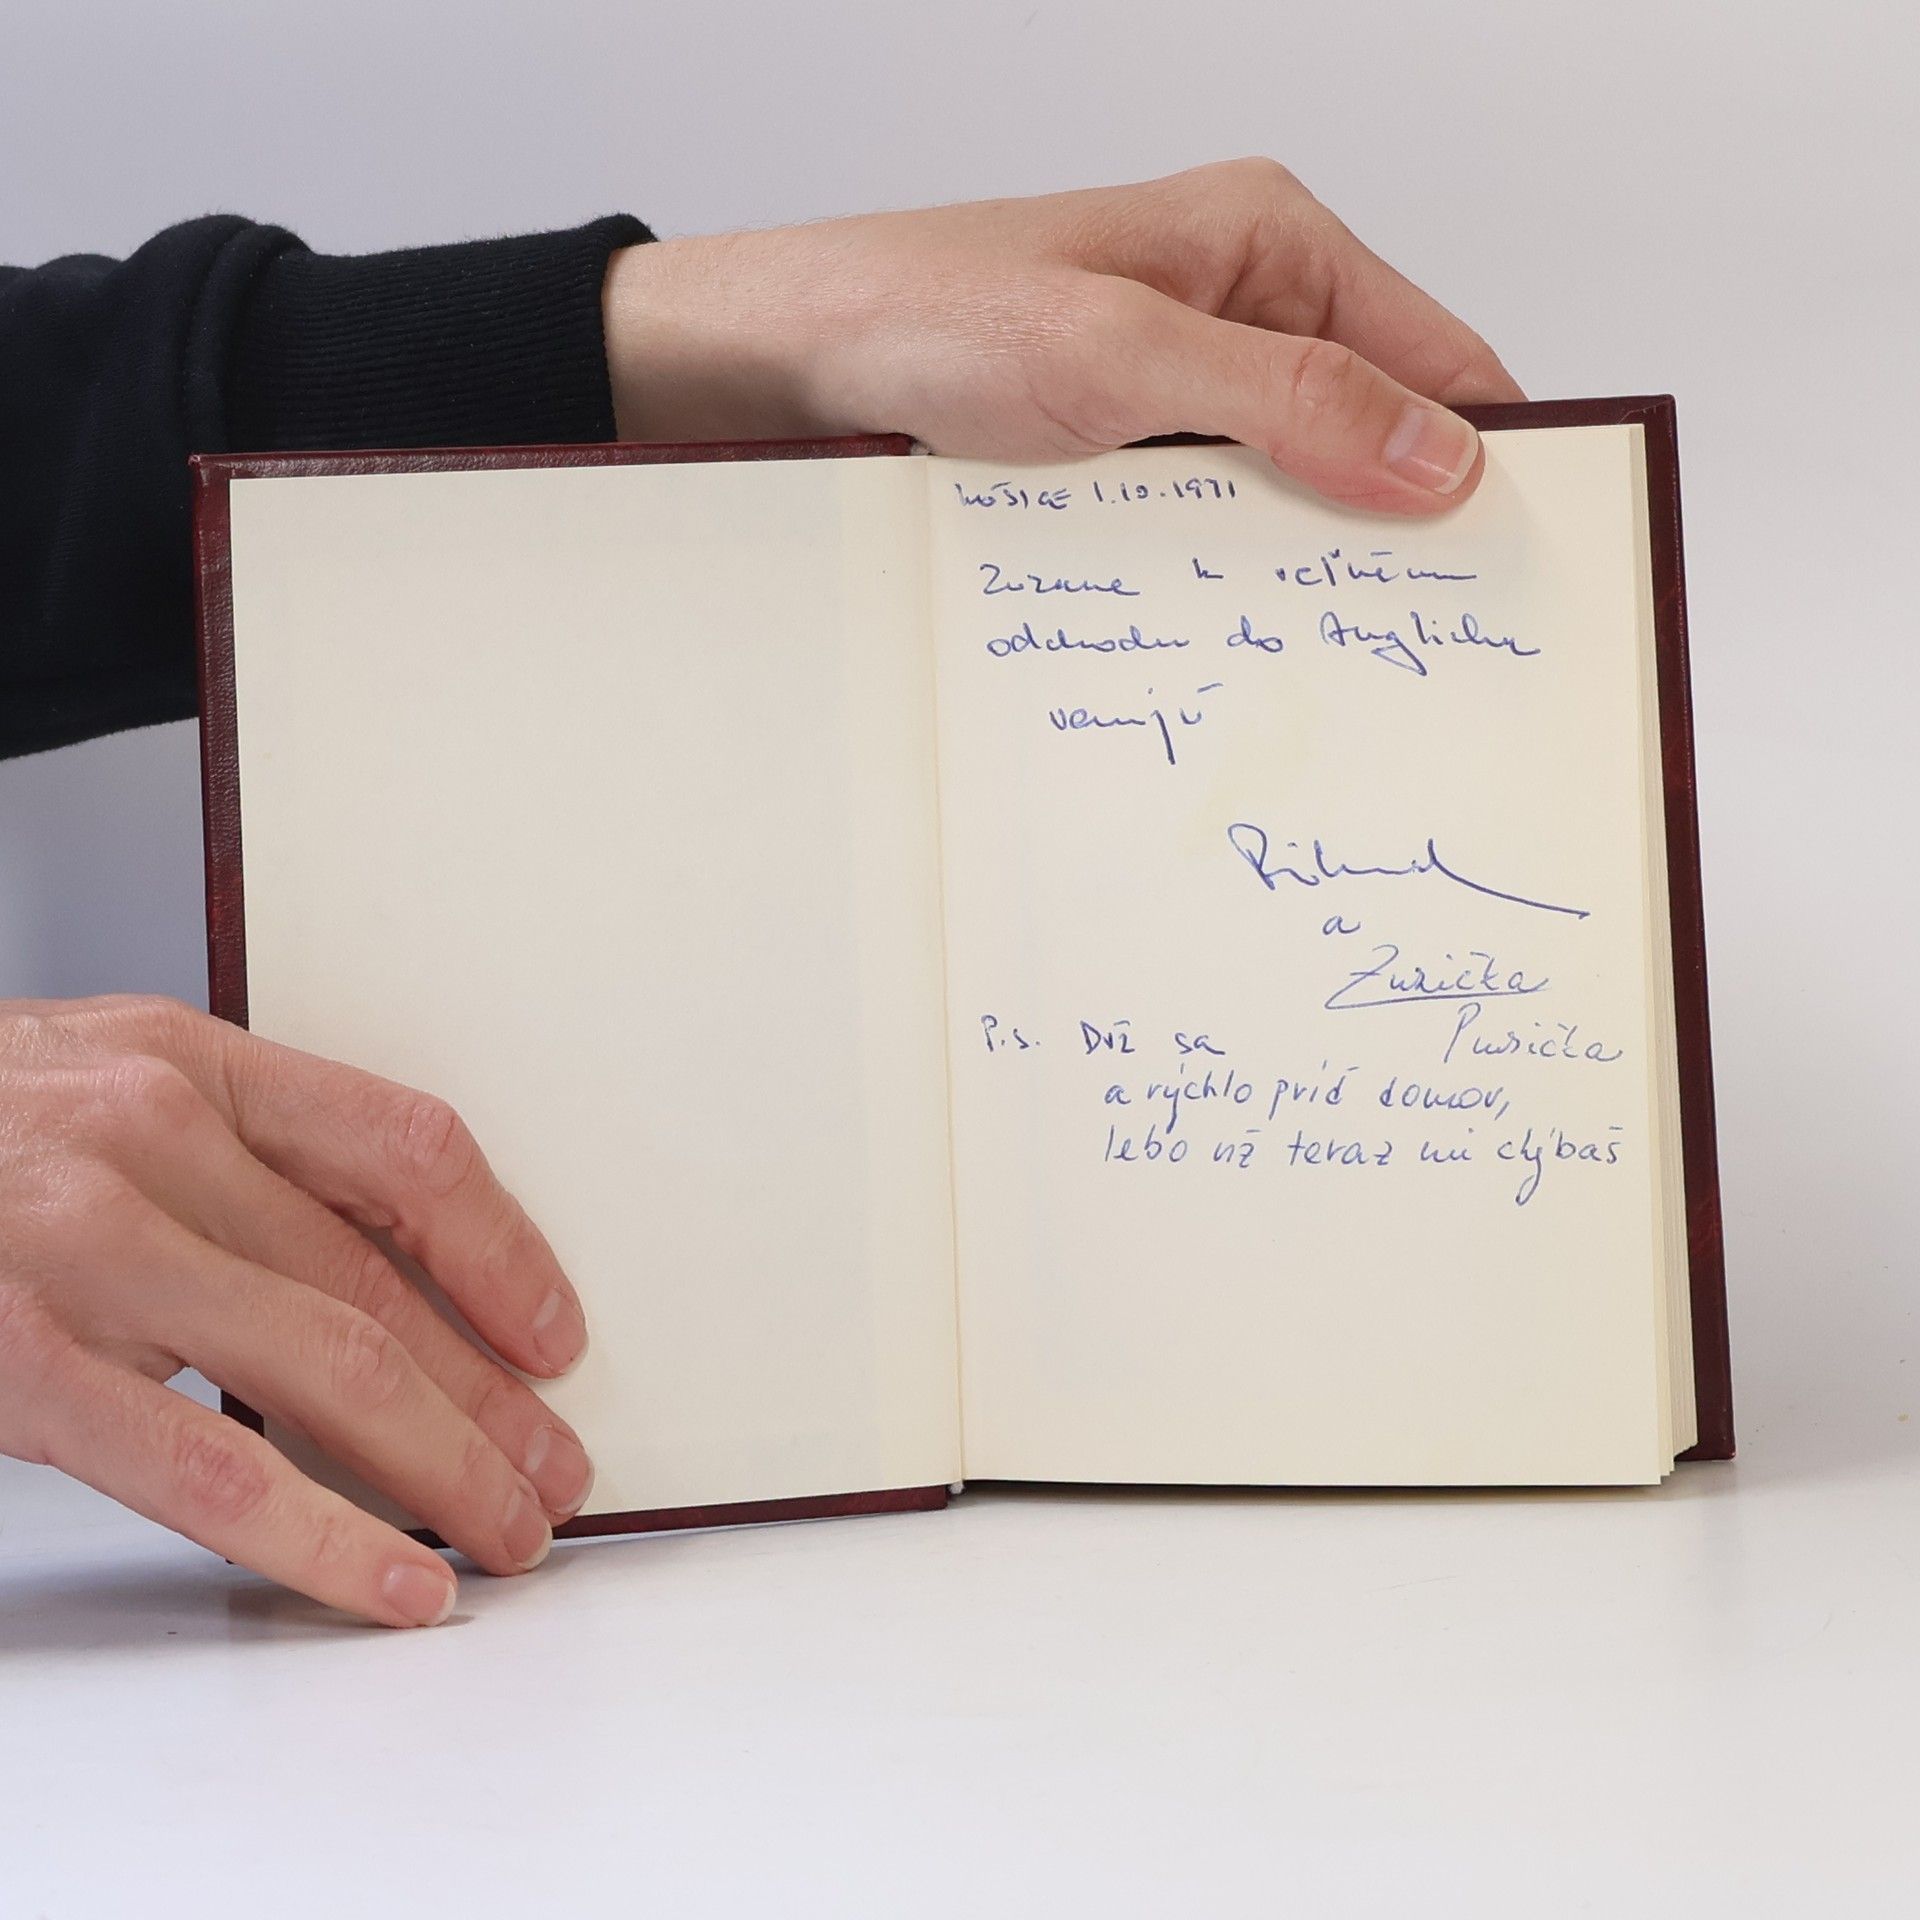 KOŠICE 1.10.1971
Zuzane k
odchodu do Anglicka
venujú
a
Zuzička
P.s. Drž sa
a rýchlo príď domov,
lebo už teraz mi chýbaš